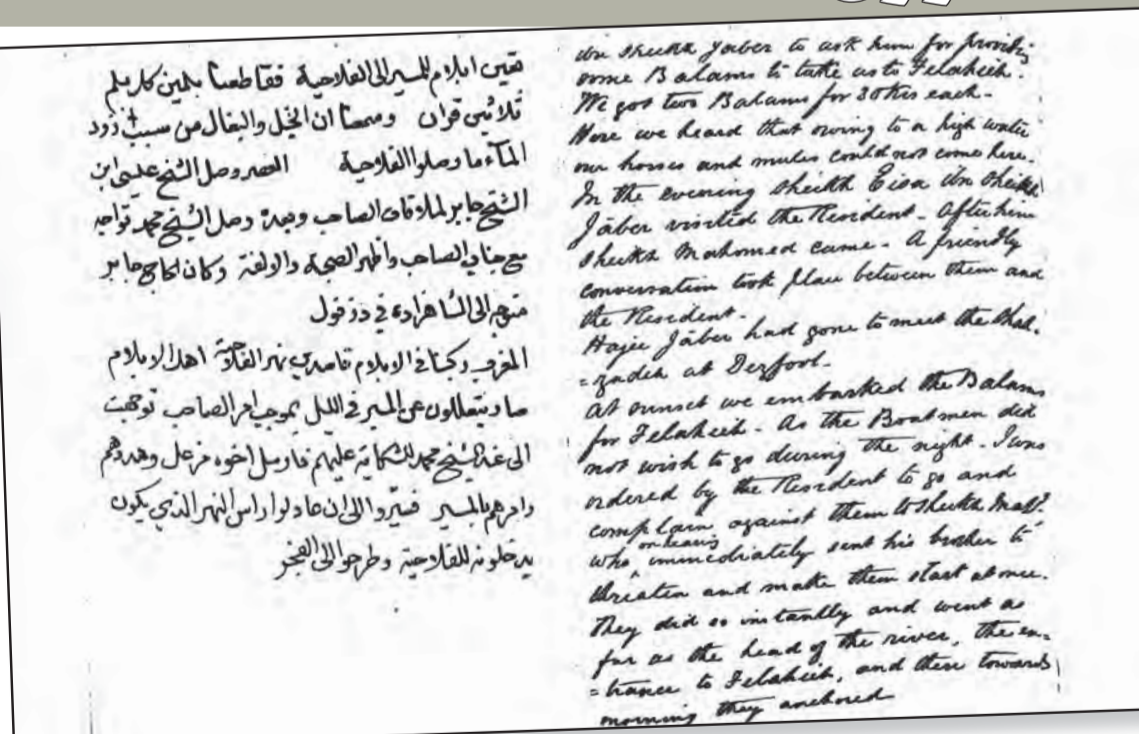 تعين ابلام للمسير الى الفلاحية فقاطعنا بلمين كل بلم
ثلاثين قران وسمعنا ان الخيل والبغال من سبب زود
المآء ما وصلوا الفلاحية العصر وصل الشيخ عيسى ابن
الشيخ جابر لملاقات الصاحب وبعده وصل الشيخ محمد تواجه
مع جناب الصاحب واظهر الصحبة والالفة وكان الحاج جابر
متوجه الى الشاهزاده في دزفول
المغرب ركبنا في الابلام قاصدين نهر الفلاحية اهل الابلام
صاروا يتعللون عن المسير في الليل بموجب امر الصاحب توجهت
الى عند الشيخ محمد للشكاية عليهم فارسل اخوه فزعل وهددهم
وامرهم بالمسير فسيروا الى ان عادلوا راس النهر الذي يكون
يدخلونه للفلاحية وطرحوا الى الفجر
ibn Sheikh Jaber to ask him for providing
some Balams to take us to Felahieh.
We got two Balams for 30 Krs each.
Here we heard that owing to a high water
our horses and mules could not come here.
In the evening Sheikh Eisa ibn Sheikh
Jaber visited the Resident. After him
Sheikh Mahomed came. A friendly
conversation took place between them and
the Resident.
Hajee Jaber had gone to meet the Shah.
=zadeh at Dezfool.
At sunset we embarked the Balams
for Felahieh. As the Boatmen did
not wish to go during the night. I was
ordered by the Resident to go and
complain against them to Sheikh Mahd.
who on hearing immediately sent his brother to
threaten and make them start at once.
They did so instantly and went as
far as the head of the river, the en-
=trance to Felahieh, and there towards
morning they anchored